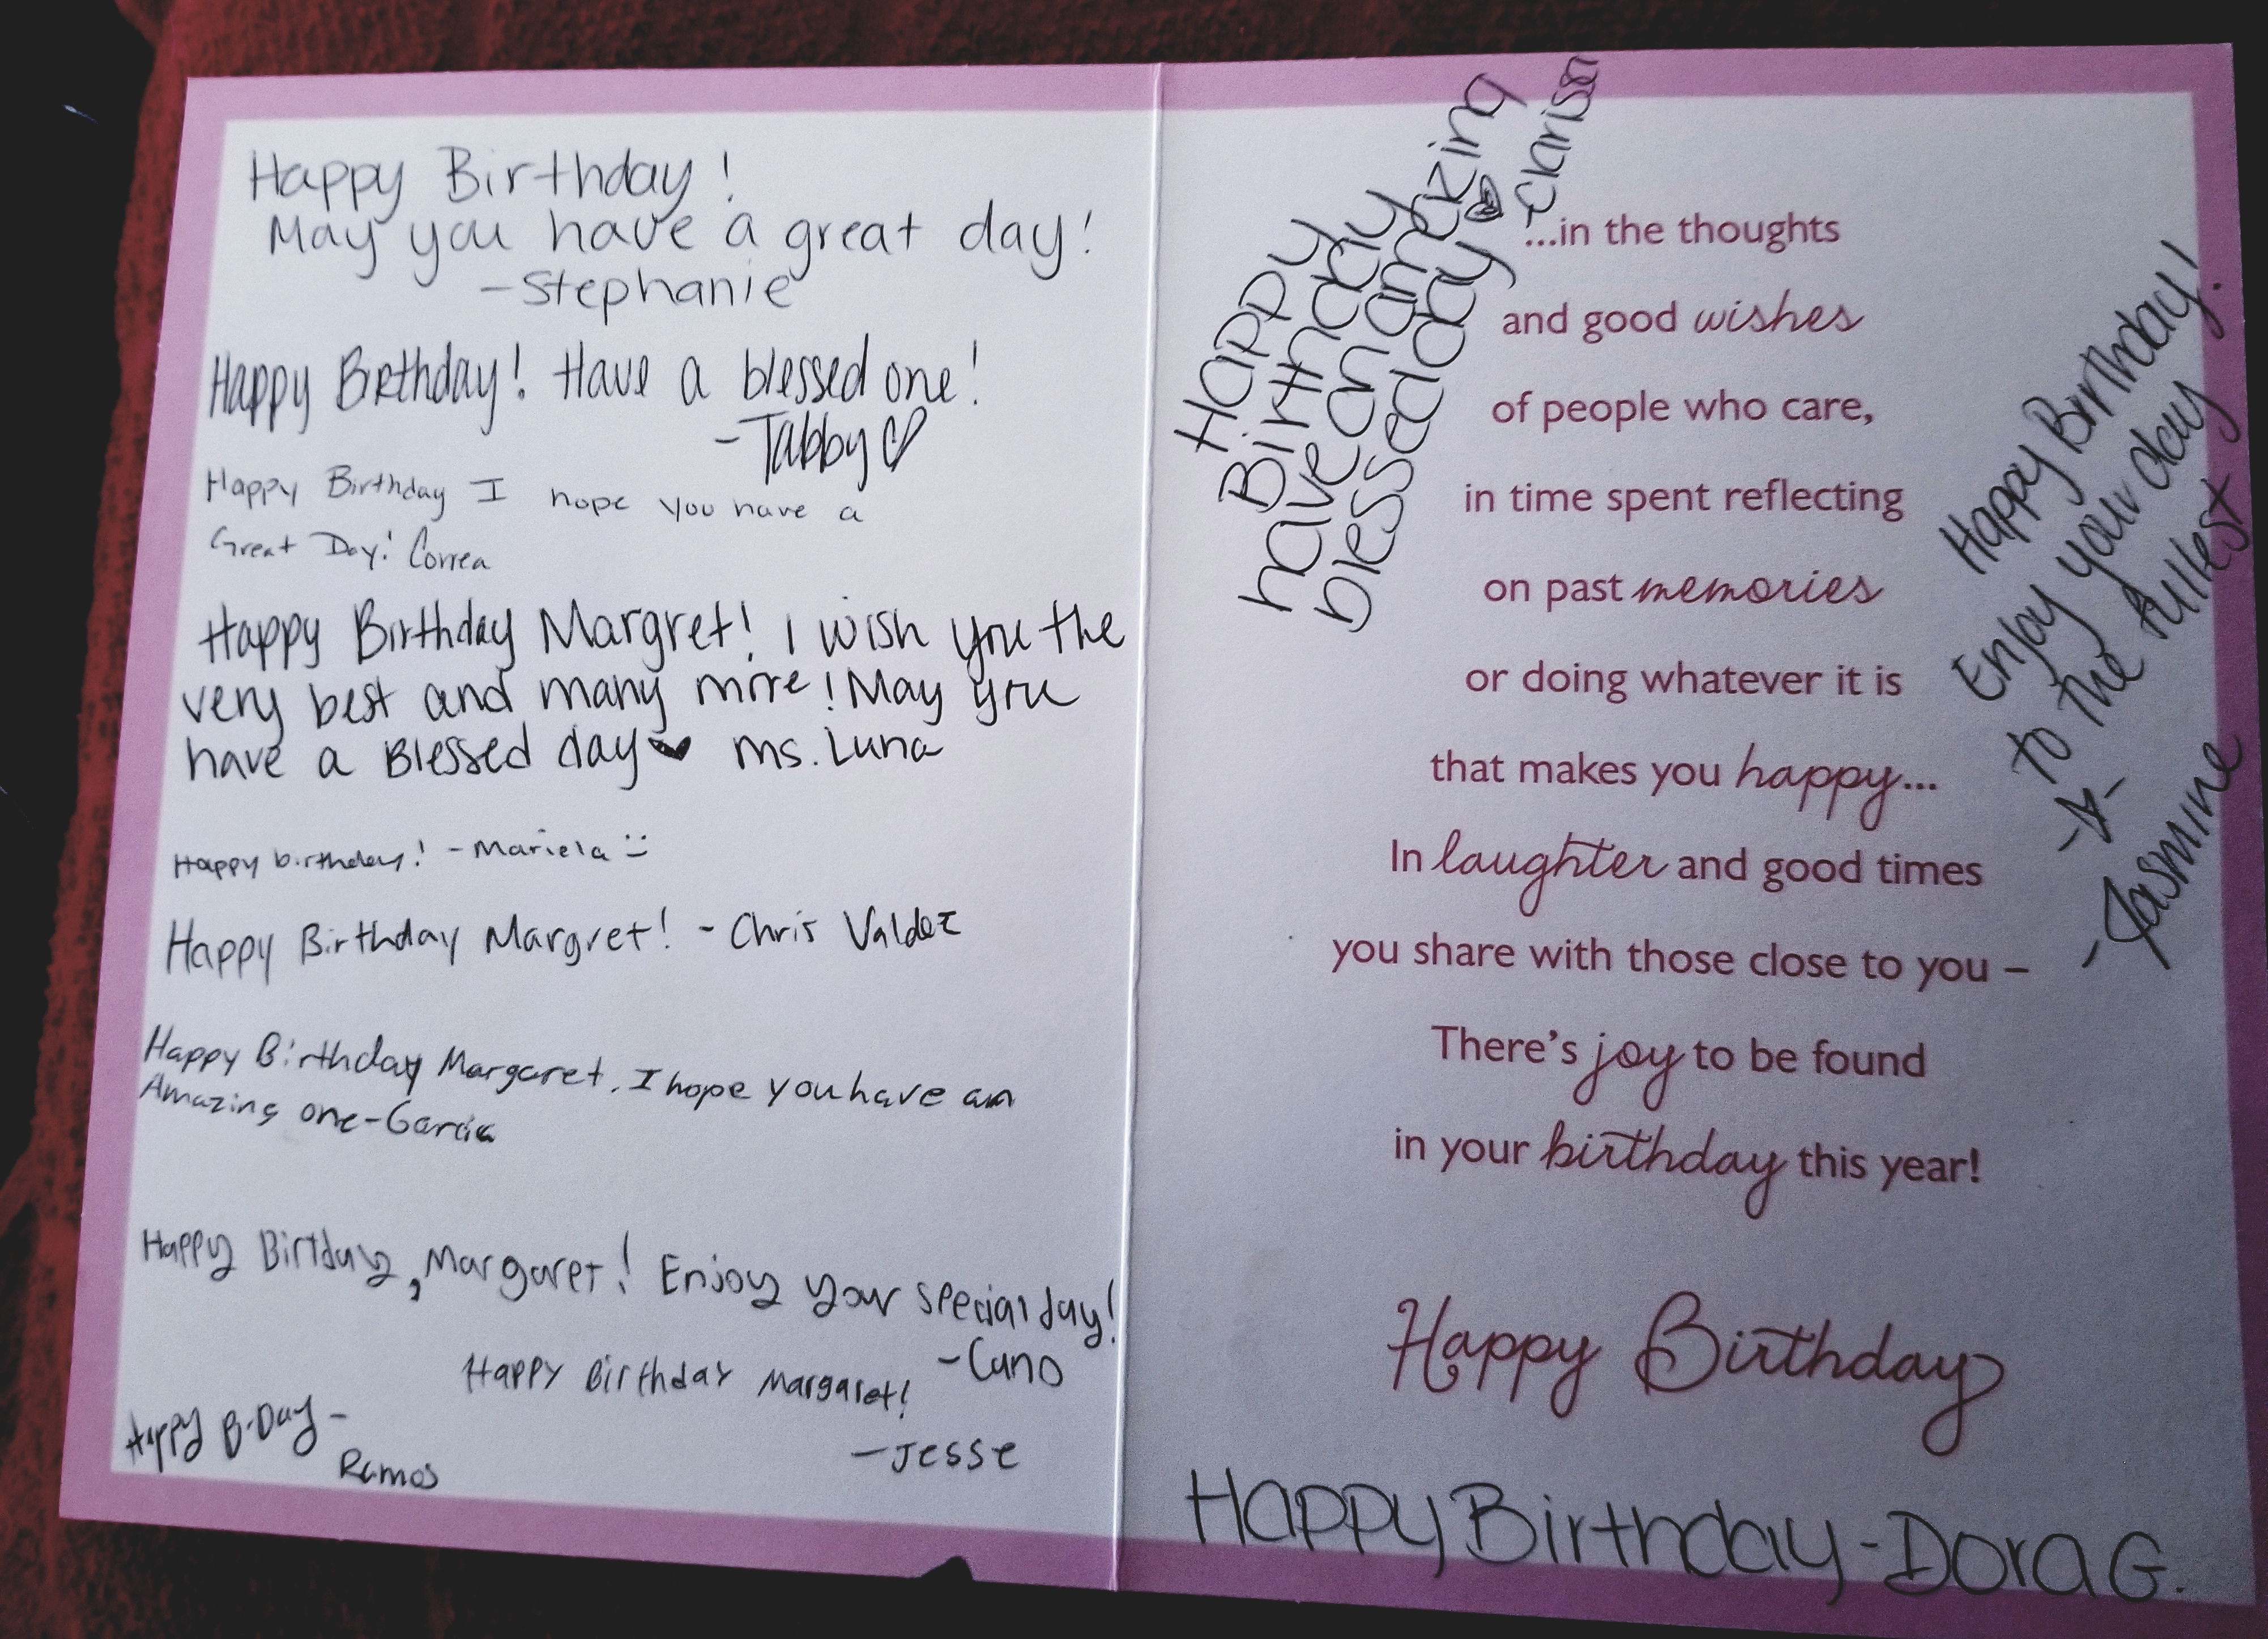 Happy Birthday!
May you have a great day!
-Stephanie
Happy Birthday! Have a blessed one!
-Tabby♡
Happy Birthday I hope you have a
Great Day! Correa
Happy Birthday Margret! I wish you the
very best and many more! May you
have a Blessed day♥ Ms. Luna
Happy birthday! -Mariela :)
Happy Birthday Margret! - Chris Valdez
Happy Birthday Margaret. I hope you have an
Amazing one-Garcia
Happy Birtday, Margaret! Enjoy your special day!
-Cano
Happy Birthday Margaret!
-Jesse
Happy B-Day-
Ramos
Happy
Birthday
have an amazing
blessed day ♥
-Clarissa
...in the thoughts
and good wishes
of people who care,
in time spent reflecting
on past memories
or doing whatever it is
that makes you happy...
In laughter and good times
you share with those close to you –
There's joy to be found
in your birthday this year!
Happy Birthday
Happy Birthday!
Enjoy your day
to the fullest
-☆-
-Jasmine
Happy Birthday-Dora G.